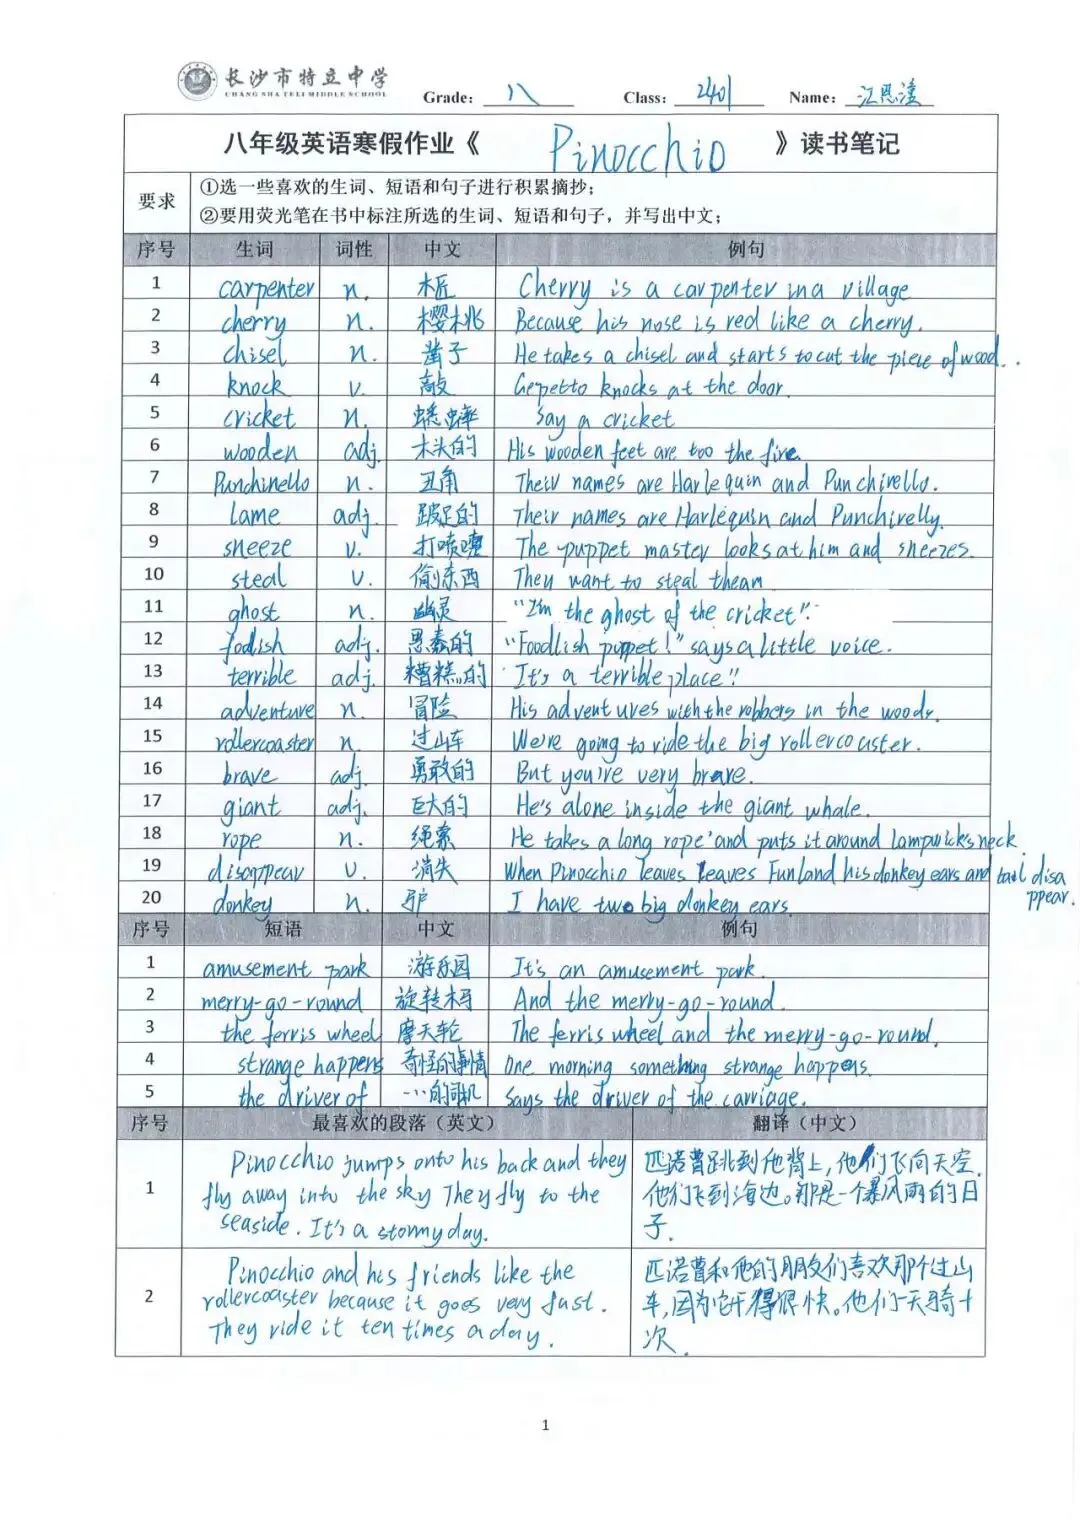 长沙市特立中学
CHANG SHA TELI MIDDLE SCHOOL
Grade: 八 Class: 2401 Name: 江恩滢
八年级英语寒假作业《 Pinocchio 》读书笔记
要求 ①选一些喜欢的生词、短语和句子进行积累摘抄;
②要用荧光笔在书中标注所选的生词、短语和句子，并写出中文;
序号 生词 词性 中文 例句
1 carpenter n. 木匠 Cherry is a carpenter in a village
2 cherry n. 樱桃 Because his nose is red like a cherry.
3 chisel n. 凿子 He takes a chisel and starts to cut the piece of wood.
4 knock v. 敲 Gepetto knocks at the door.
5 cricket n. 蟋蟀 Say a cricket
6 wooden adj. 木头的 His wooden feet are too the fire.
7 Punchinello n. 丑角 Their names are Harlequin and Punchinello.
8 lame adj. 跛足的 Their names are Harlequin and Punchinelly.
9 sneeze v. 打喷嚏 The puppet master looks at him and sneezes.
10 steal v. 偷东西 They want to steal theam
11 ghost n. 幽灵 "I'm the ghost of the cricket".
12 foolish adj. 愚蠢的 "Foodlish puppet!" says a little voice.
13 terrible adj. 糟糕的 "It's a terrible place"!
14 adventure n. 冒险 His adventures with the robbers in the woods.
15 rollercoaster n. 过山车 We're going to ride the big rollercoaster.
16 brave adj. 勇敢的 But you're very brave.
17 giant adj. 巨大的 He's alone inside the giant whale.
18 rope n. 绳索 He takes a long rope and puts it around Lampwick's neck.
19 disappear v. 消失 When Pinocchio leaves leaves Funland his donkey ears and tail disa
ppear.
20 donkey n. 驴 I have two big donkey ears.
序号 短语 中文 例句
1 amusement park 游乐园 It's an amusement park.
2 merry-go-round 旋转木马 And the merry-go-round.
3 the ferris wheel 摩天轮 The ferris wheel and the merry-go-round.
4 strange happens 奇怪的事情 One morning something strange happens.
5 the driver of …的司机 Says the driver of the carriage.
序号 最喜欢的段落（英文） 翻译（中文）
1 Pinocchio jumps onto his back and they
fly away into the sky They fly to the
seaside. It's a stormy day.
匹诺曹跳到他背上，他们飞向天空.
他们飞到海边。那是一个暴风雨的日
子.
2 Pinocchio and his friends like the
rollercoaster because it goes very fast.
They ride it ten times a day.
匹诺曹和他的朋友们喜欢那个过山
车，因为它开得很快。他们一天骑十
次.
1